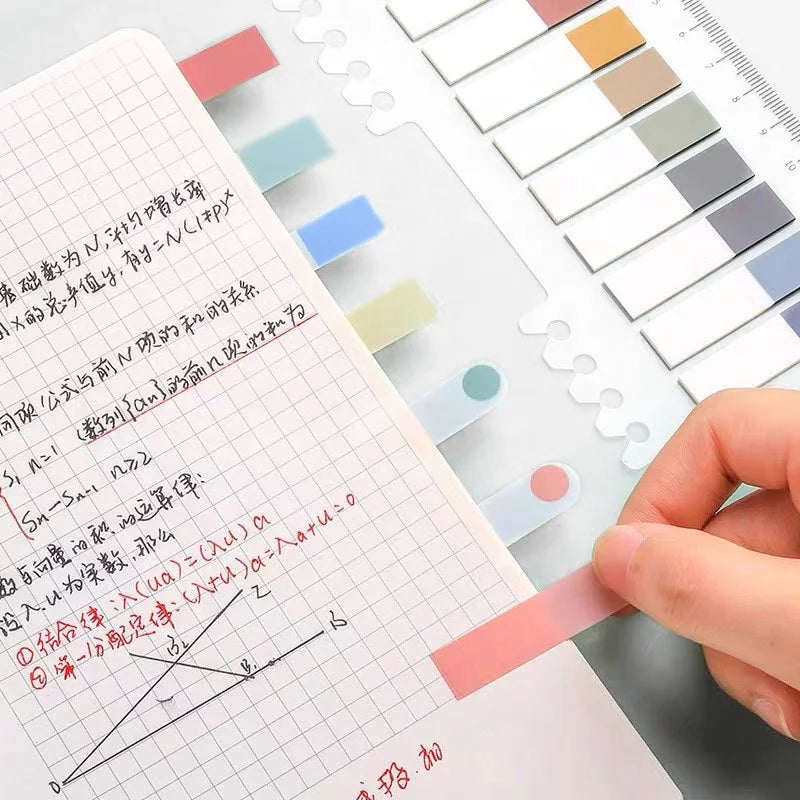 基础数为N,平均增长率
x的总产值y,有y=N(1+p)ˣ
同项公式与前N项的和的关系
S₁ n=1 (数列{an}的前n项的和为
Sn-Sn-1 n≥2
数与向量的积的运算律:
设λ.u为实数,那么
①结合律:λ(ua)=(λu)a
②第一分配定律:(λ+u)a=λa+u=0
B₂
B₁
0
5
6
7
8
9
10